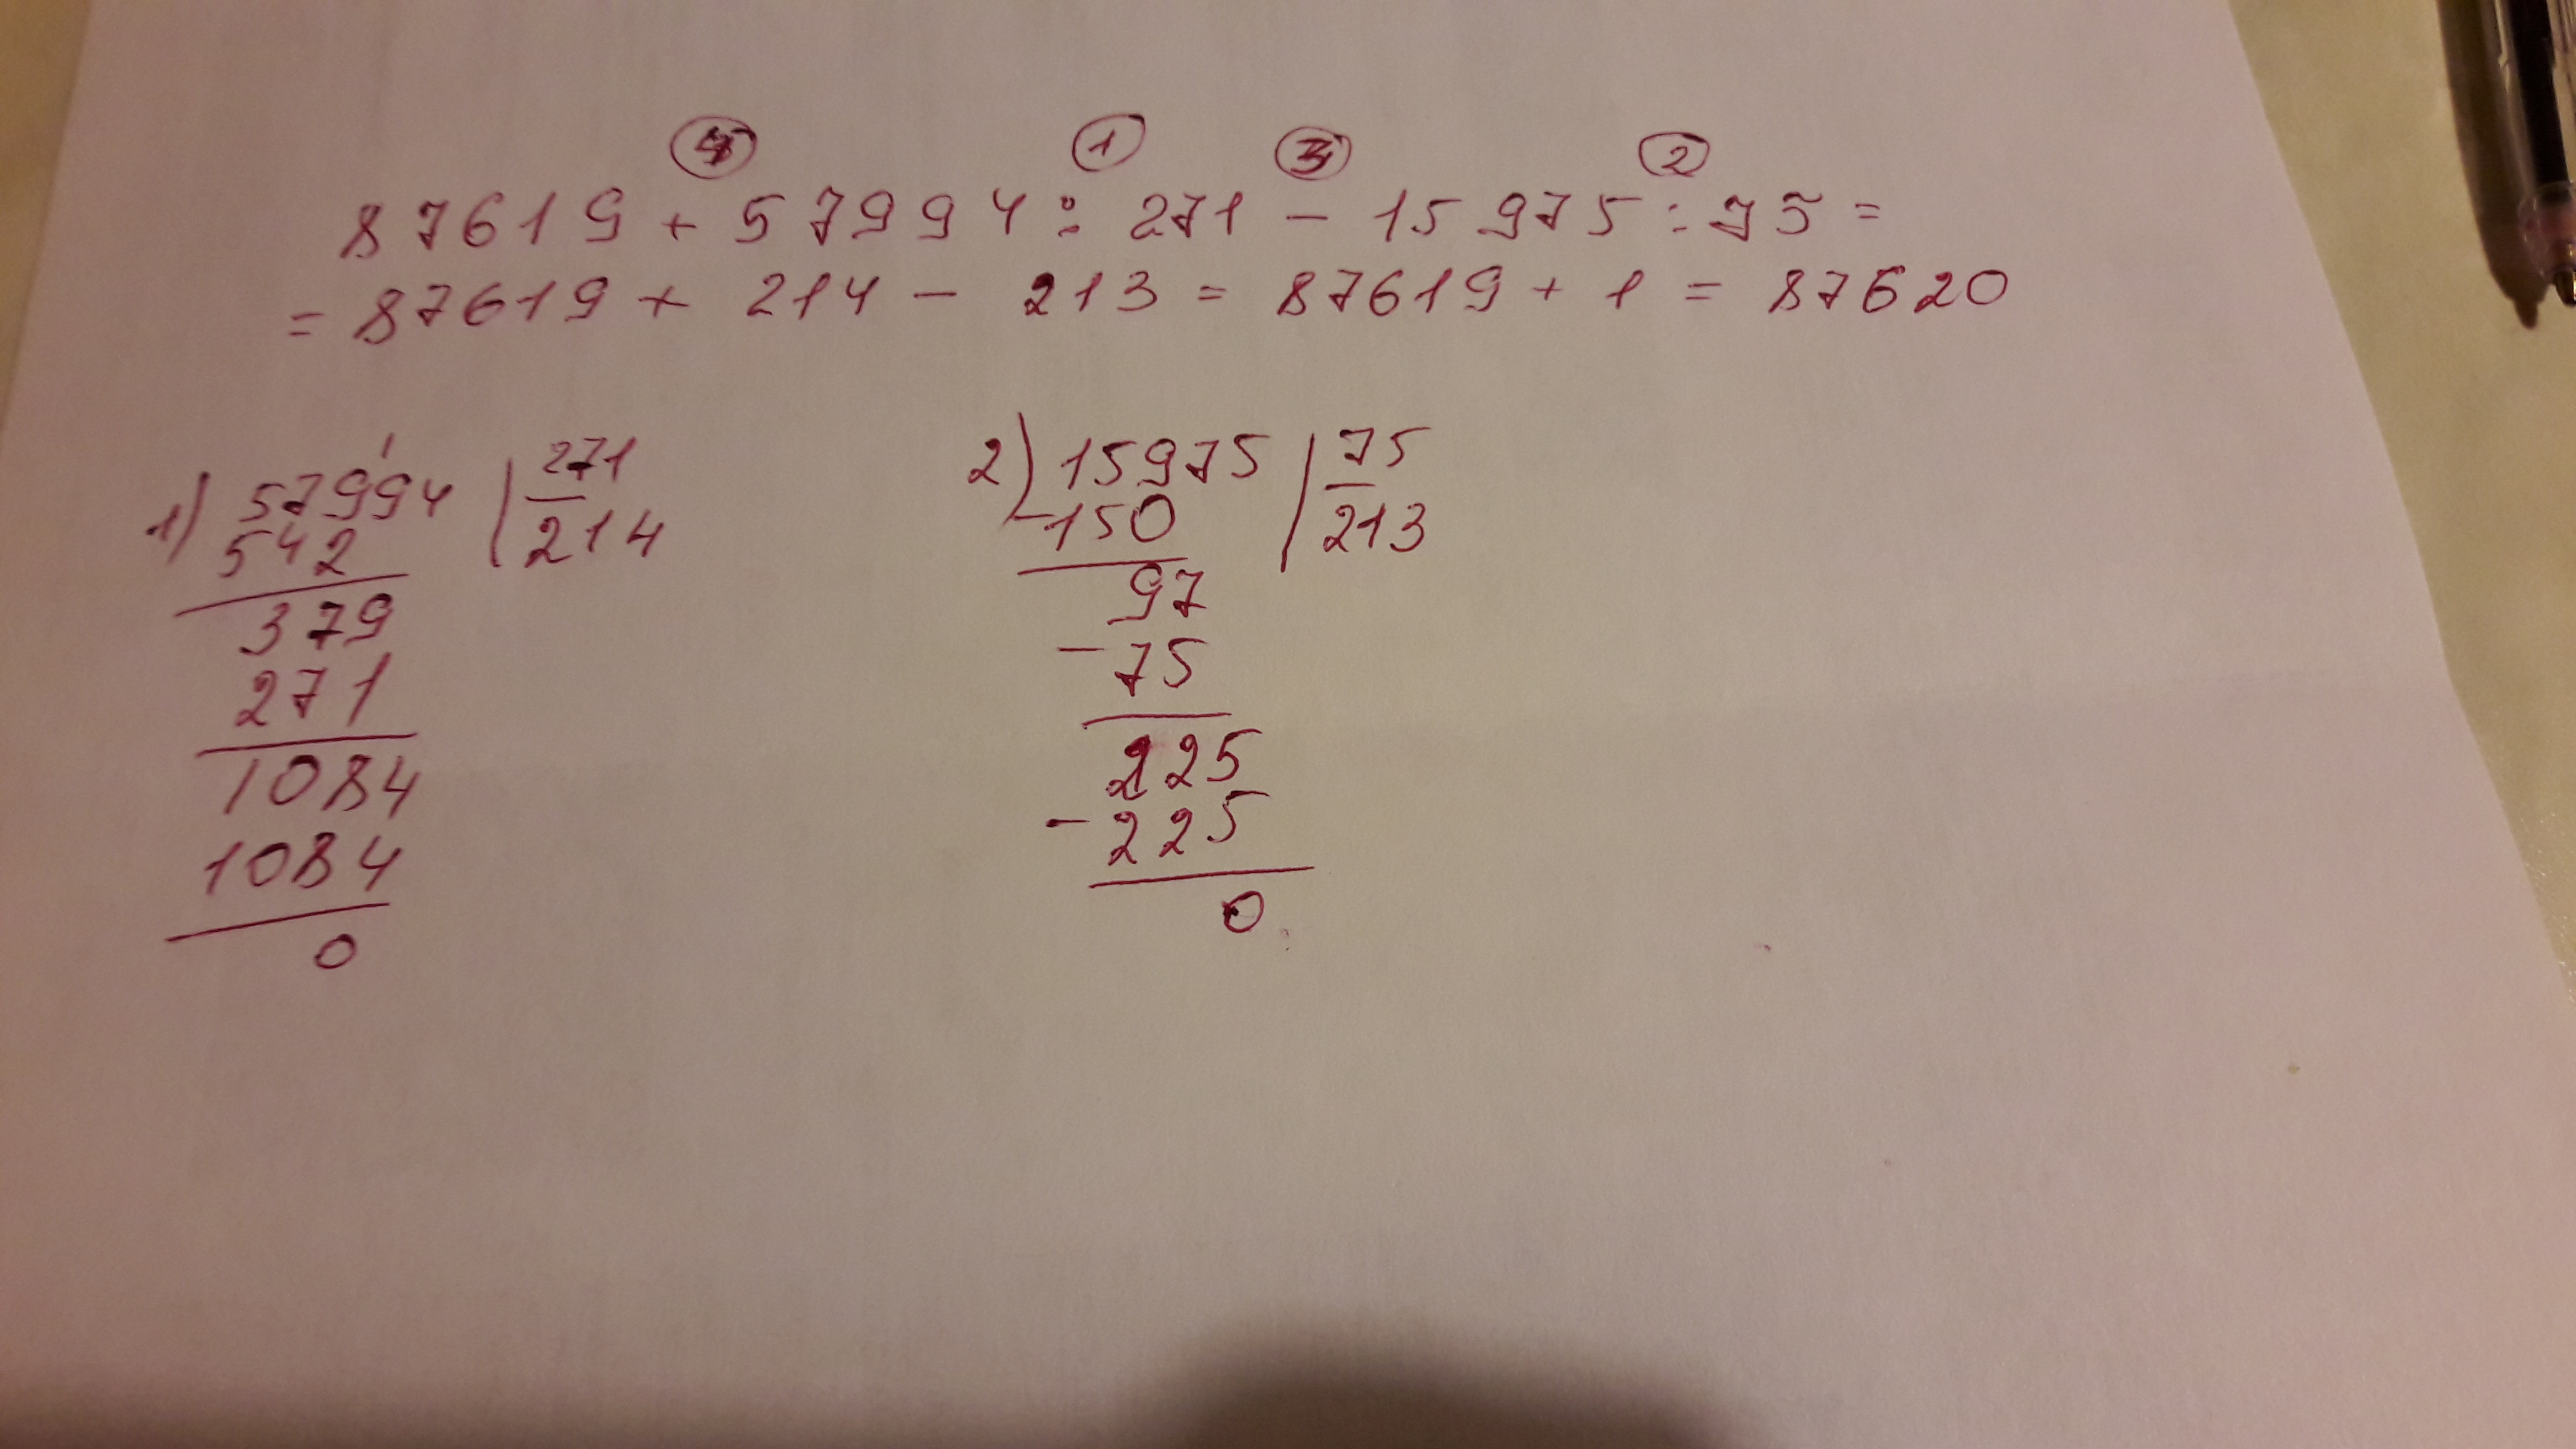 4 1 3 2
87619 + 57994 : 271 - 15975 : 75 =
= 87619 + 214 - 213 = 87619 + 1 = 87620
1) 57994 | 271
542 | 214
379
271
1084
1084
0
2) 15975 | 75
-150 | 213
97
- 75
225
- 225
0